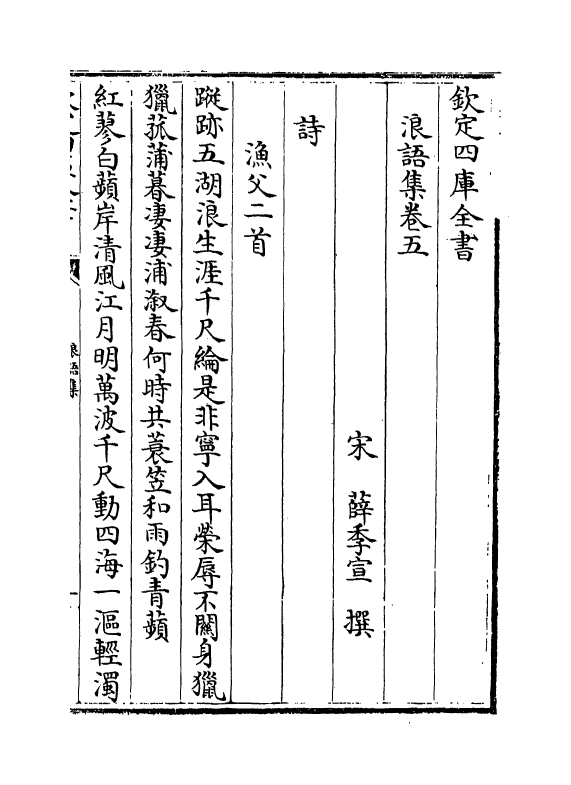 欽定四庫全書
浪語集卷五
宋　薛季宣　撰
詩
漁父二首
蹤跡五湖浪生涯千尺綸是非寧入耳榮辱不關身獵
獵菰蒲暮凄凄浦溆春何時共蓑笠和雨釣青蘋
紅蓼白蘋岸清風江月明萬波千尺動四海一漚輕濁
浪語集